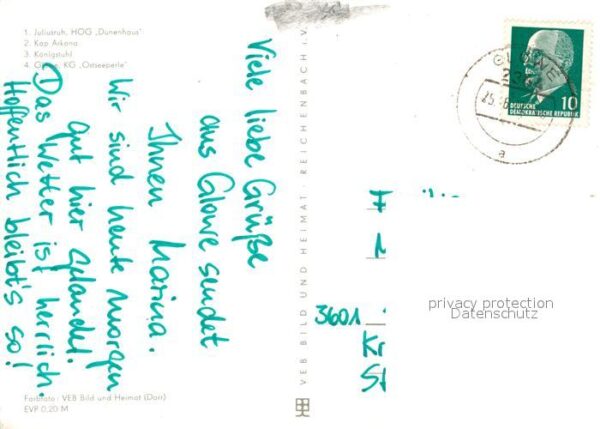 1. Juliusruh, HOG „Dünenhaus"
2. Kap Arkona
3. Königstuhl
4. Glowe, KG „Ostseeperle"
Viele liebe Grüße
aus Glowe sendet
Ihnen Marina.
Wir sind heute morgen
gut hier gelandet.
Das Wetter ist herrlich.
Hoffentlich bleibt's so!
Farbfoto: VEB Bild und Heimat (Darr)
EVP 0,20 M
VEB BILD UND HEIMAT · REICHENBACH i. V.
GLOWE
25.
a
DEUTSCHE
DEMOKRATISCHE REPUBLIK
10
3601
Kr
St
privacy protection
Datenschutz